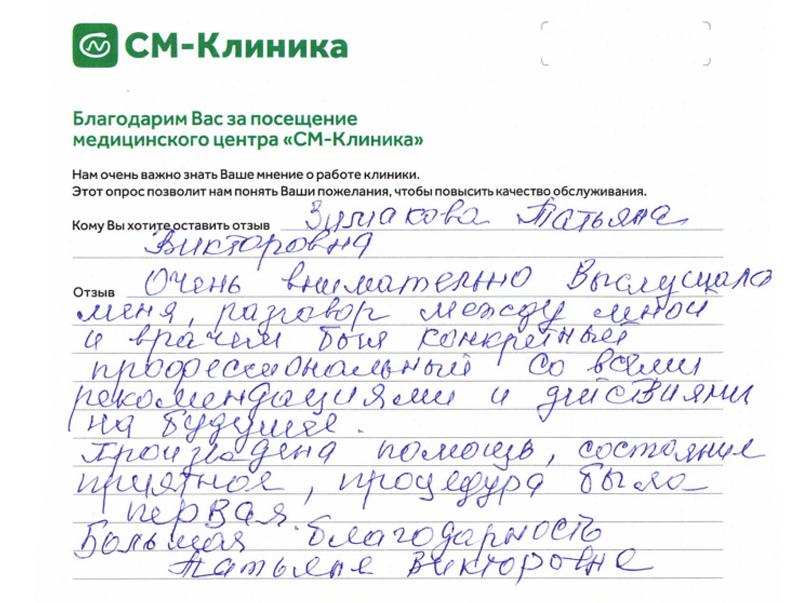 СМ-Клиника
Благодарим Вас за посещение
медицинского центра «СМ-Клиника»
Нам очень важно знать Ваше мнение о работе клиники.
Этот опрос позволит нам понять Ваши пожелания, чтобы повысить качество обслуживания.
Кому Вы хотите оставить отзыв Зимакова Татьяна
Викторовна
Отзыв Очень внимательно выслушала
меня, разговор между мной
и врачем был конкретный
профессиональный со всеми
рекомендациями и действиями
на будущее.
Произведена помощь, состояние
приятное, процедура была
первая.
Большая благодарность
Татьяне Викторовне